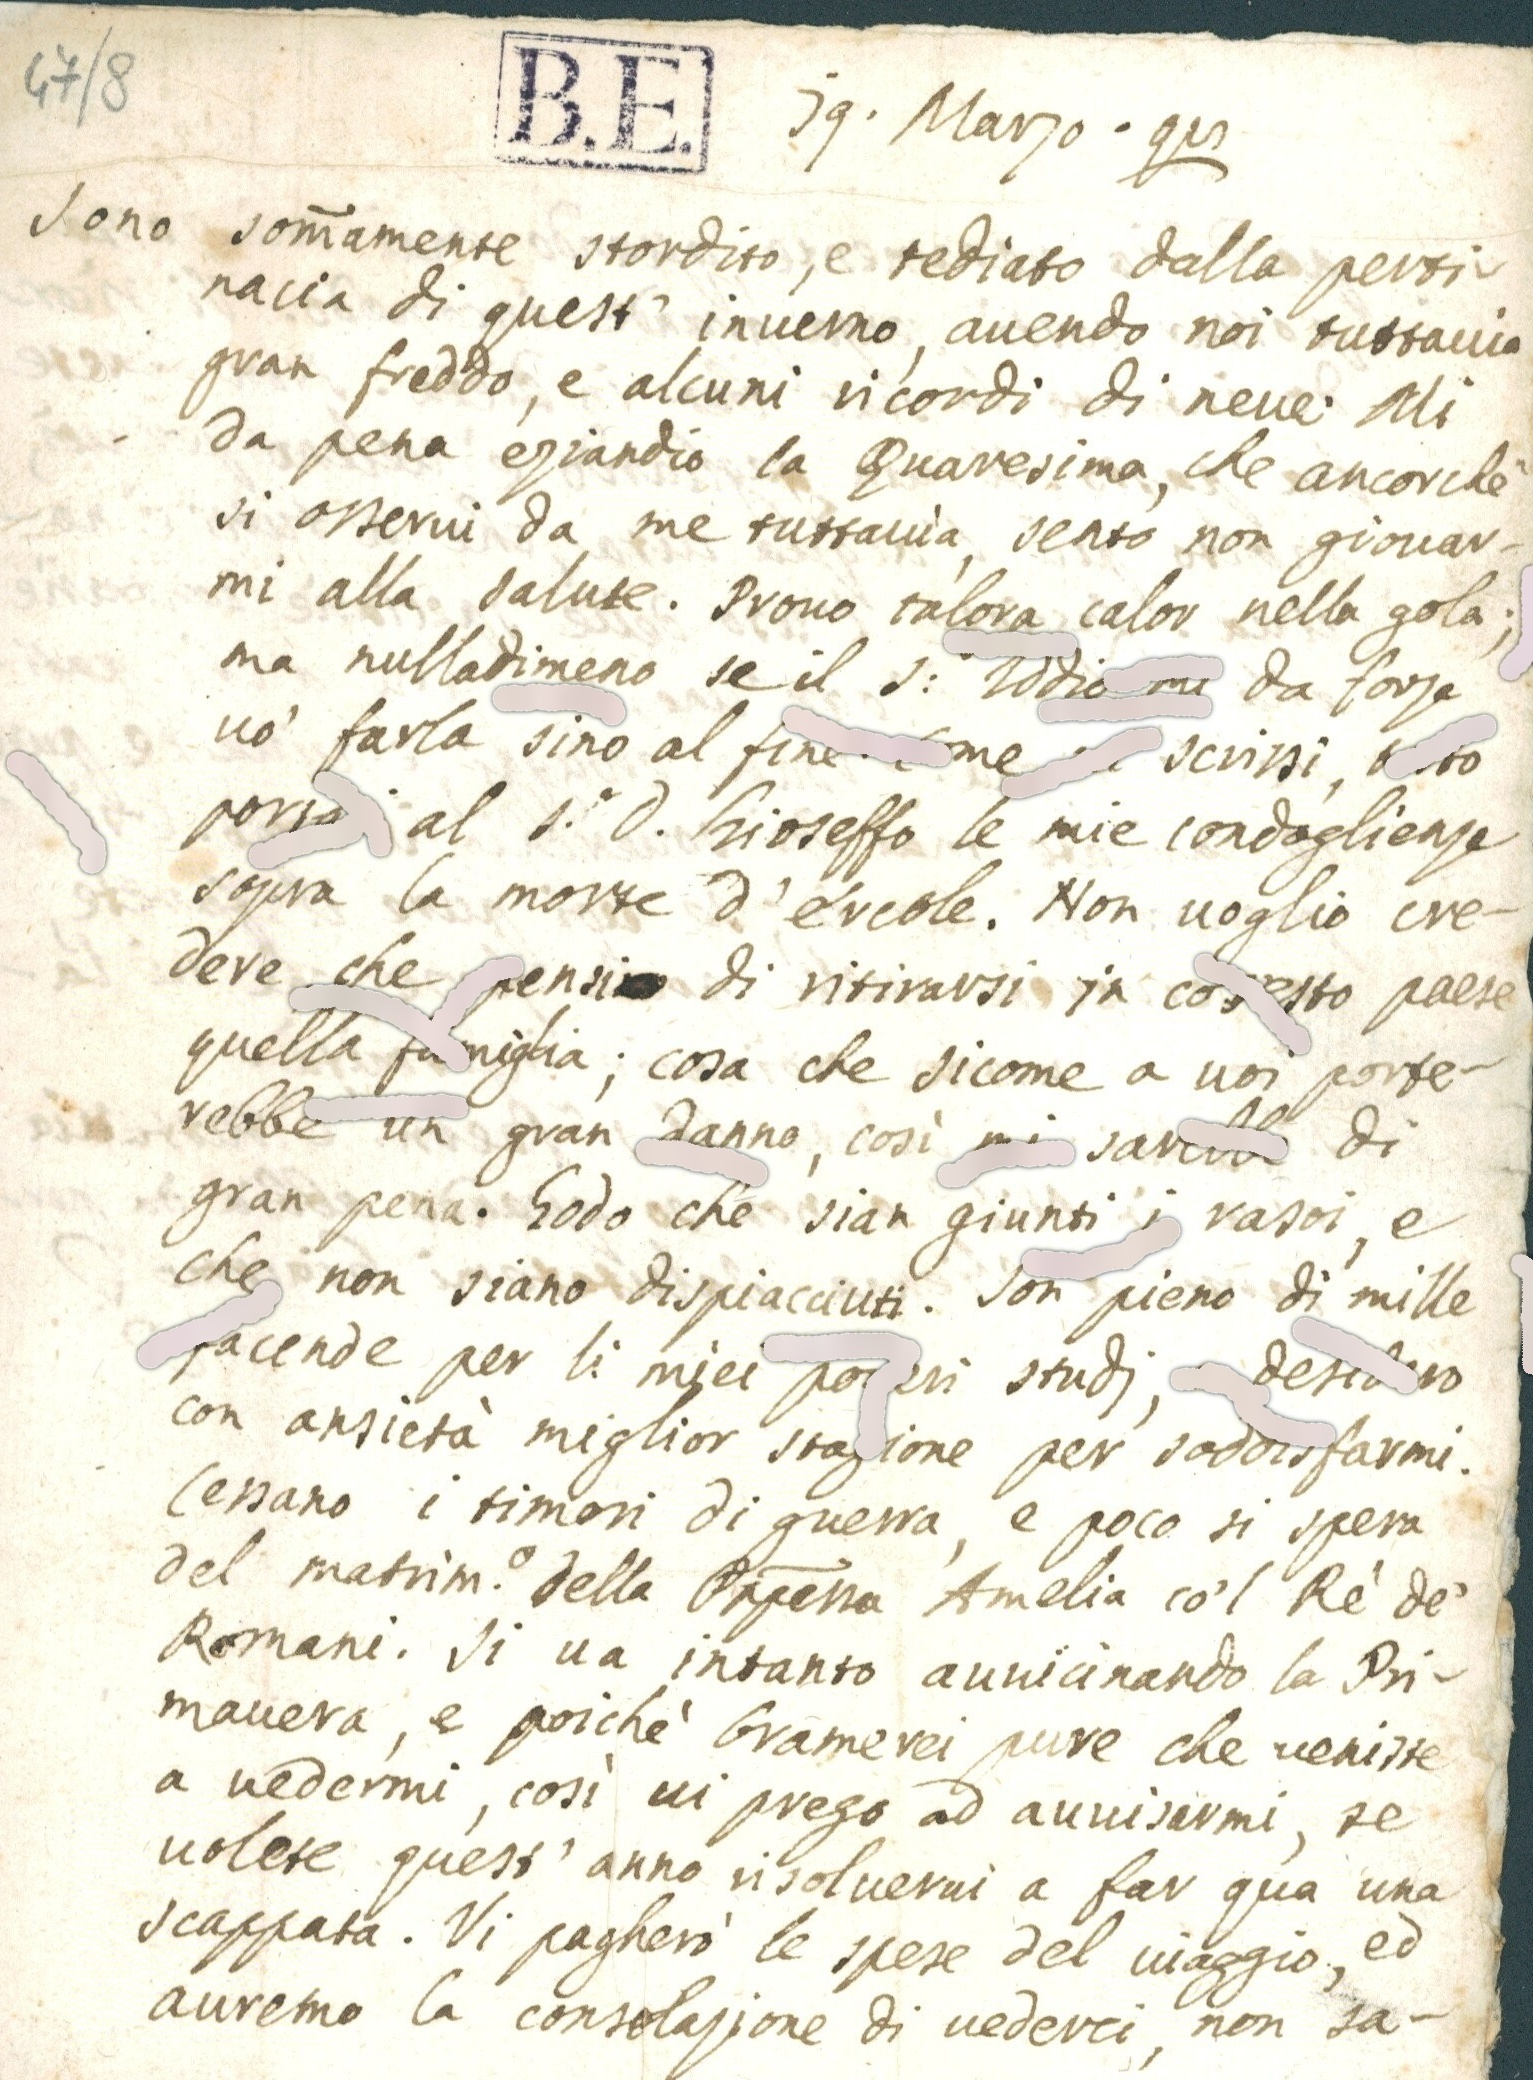 47/8
B.E.
19. Marzo.
Sono som̃amente stordito, e tediato dalla perti-
nacia di quest' inuerno, auendo noi tuttauia
gran freddo, e alcuni ricordi di neue. Mi
da pena eziandio la Quaresima, che ancorchè
si osserui da me tuttauia, sento non giouar-
mi alla salute. Prouo talora calor nella gola;
ma nulladimeno se il S.r Iddio da forza
uò farla sino al fine. scrissi,
al S.r D. Gioseffo le mie condoglienze
sopra la morte d' Ercole. Non uoglio cre-
dere che pensi di ritirarsi in cotesto paese
quella famiglia; cosa che sicome a uoi porte-
rebbe un gran danno, così mi sarebbe di
gran pena. Godo che sian giunti i rasoi, e
che non siano dispiacciuti. Son pieno di mille
facende per li miei poueri studj, desidero
con ansietà miglior stagione per soddisfarmi.
Cessano i timori di guerra, e poco si spera
del matrim.o della Prp̃essa Amelia co'l Rè de'
Romani. Si ua intanto auuicinando la Pri-
mauera, e poichè bramerei pure che ueniste
a uedermi, così ui prego ad auuisarmi, se
uolete quest' anno risoluerui a far qua una
scappata. Vi pagherò le spese del uiaggio, ed
auremo la consolazione di uederci, non sa-